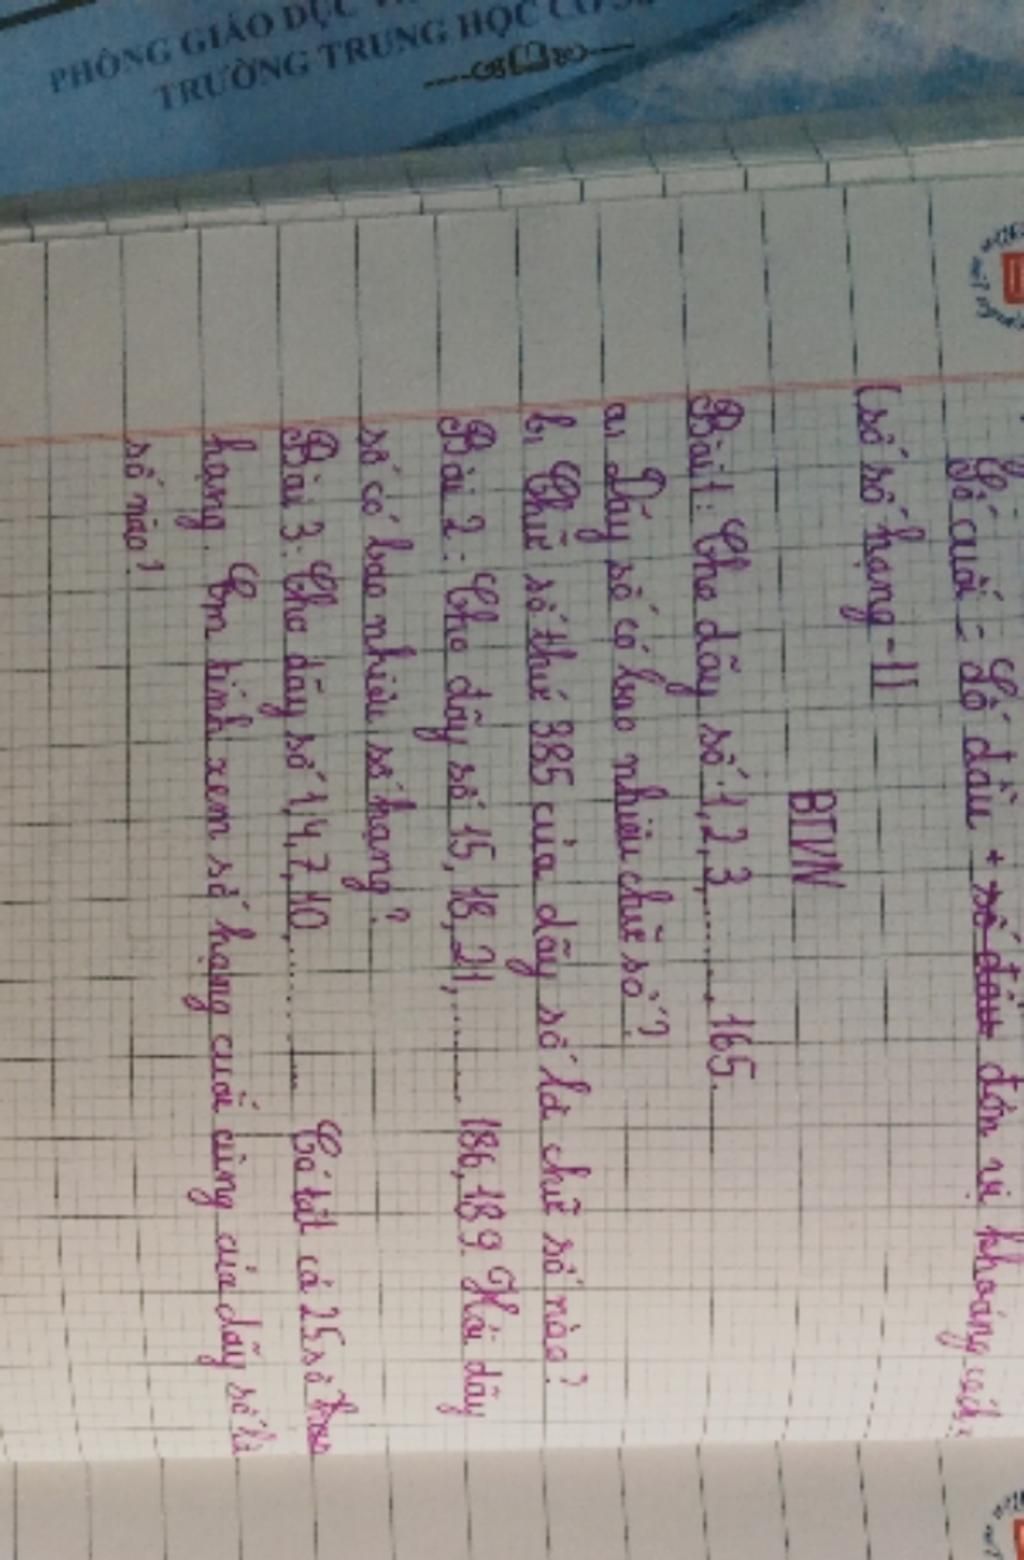 PHÒNG GIÁO DỤC
TRƯỜNG TRUNG HỌC CƠ
Số cuối = Số đầu + số đầu đơn vị khoảng cách
(số số hạng - 1)
BTVN
Bài 1: Cho dãy số 1, 2, 3, ........, 165.
a, Dãy số có bao nhiêu chữ số?
b, Chữ số thứ 385 của dãy số là chữ số nào?
Bài 2: Cho dãy số 15, 18, 21, ........ 186, 189. Hỏi dãy
số có bao nhiêu số hạng?
Bài 3: Cho dãy số 1, 4, 7, 10, ........... Có tất cả 25 số
hạng. Em tính xem số hạng cuối cùng của dãy số là
số nào?